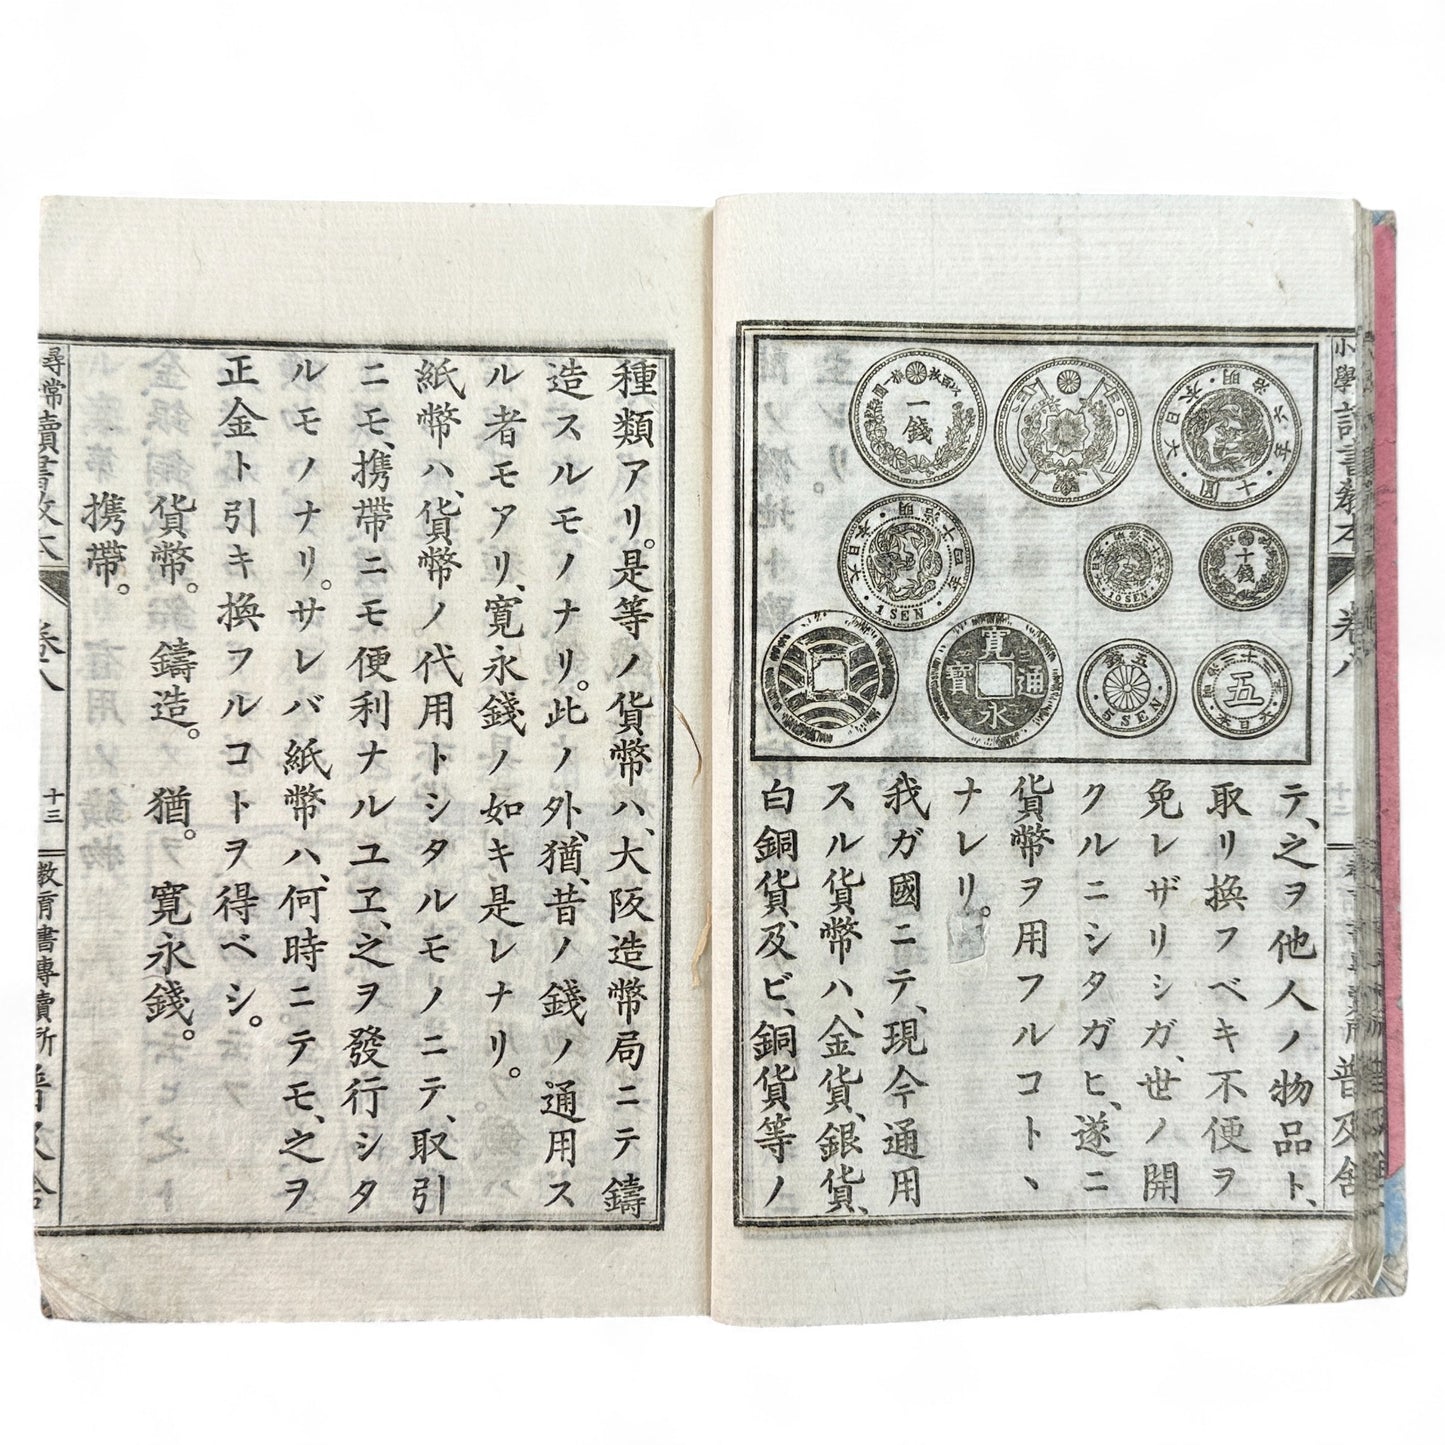 小學讀書教本
卷八
十二
普及舍
一錢
大日本
明治
六年
十圓
大日本
明治十四年
1 SEN
10 SEN
十錢
寬永通寶
五錢
5 SEN
五
大日本
テ、之ヲ他人ノ物品ト、
取リ換フベキ不便ヲ
免レザリシガ、世ノ開
クルニシタガヒ、遂ニ
貨幣ヲ用フルコトヽ
ナレリ。
我ガ國ニテ、現今通用
スル貨幣ハ、金貨、銀貨、
白銅貨、及ビ、銅貨等ノ
種類アリ。是等ノ貨幣ハ、大阪造幣局ニテ鑄
造スルモノナリ。此ノ外、猶、昔ノ錢ノ通用ス
ル者モアリ、寬永錢ノ如キ是レナリ。
紙幣ハ、貨幣ノ代用トシタルモノニテ、取引
ニモ、携帶ニモ便利ナルユヱ、之ヲ發行シタ
ルモノナリ。サレバ紙幣ハ、何時ニテモ、之ヲ
正金ト引キ換フルコトヲ得ベシ。
貨幣。 鑄造。 猶。 寬永錢。
携帶。
尋常讀書教本
卷八
十三
教育書專賣所
普及舍